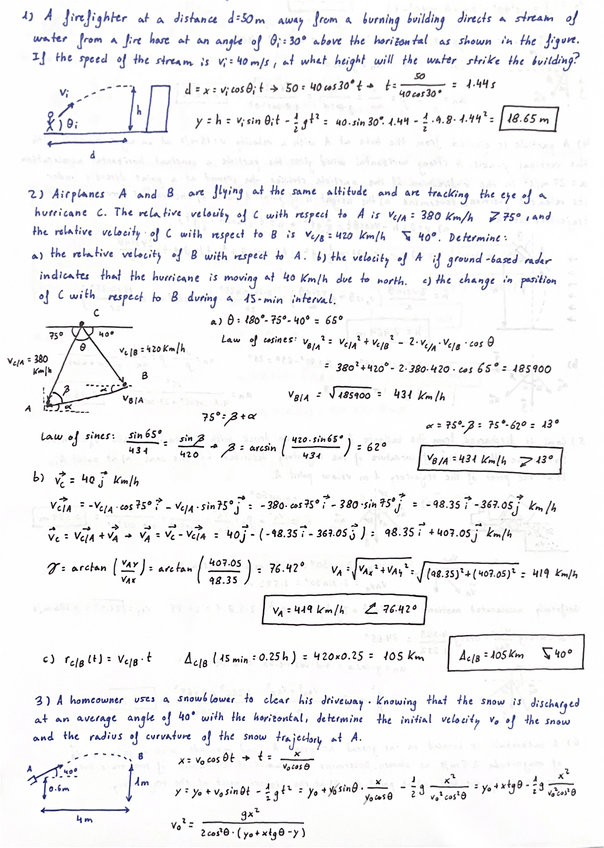 1) A firefighter at a distance d=50m away from a burning building directs a stream of
water from a fire hose at an angle of θi=30° above the horizontal as shown in the figure.
If the speed of the stream is vi=40m/s, at what height will the water strike the building?
d = x = vi cosθi t → 50 = 40 cos30° t → t = 50/(40 cos30°) = 1.44s
y = h = vi sinθi t - 1/2 g t² = 40·sin30°·1.44 - 1/2·9.8·1.44² = 18.65 m
vi
θi
h
d
2) Airplanes A and B are flying at the same altitude and are tracking the eye of a
hurricane C. The relative velocity of C with respect to A is vC/A = 380 Km/h 75°, and
the relative velocity of C with respect to B is vC/B = 420 Km/h 40°. Determine:
a) the relative velocity of B with respect to A. b) the velocity of A if ground-based radar
indicates that the hurricane is moving at 40 Km/h due to north. c) the change in position
of C with respect to B during a 15-min interval.
C
75° 40°
θ
vC/A = 380 Km/h
vC/B = 420 Km/h
B
vB/A
A
β
α
α
a) θ = 180° - 75° - 40° = 65°
Law of cosines: vB/A² = vC/A² + vC/B² - 2·vC/A·vC/B·cosθ
= 380² + 420² - 2·380·420·cos 65° = 185900
vB/A = √185900 = 431 Km/h
75° = β + α
α = 75° - β = 75° - 62° = 13°
Law of sines: sin65°/431 = sinβ/420 → β = arcsin (420·sin65°/431) = 62°
vB/A = 431 Km/h 13°
b) vC = 40 j Km/h
vC/A = -vC/A·cos75° i - vC/A·sin75° j = -380·cos75° i - 380·sin75° j = -98.35 i - 367.05 j Km/h
vC = vC/A + vA → vA = vC - vC/A = 40j - (-98.35 i - 367.05 j) = 98.35 i + 407.05 j Km/h
γ = arctan (vAy/vAx) = arctan (407.05/98.35) = 76.42° vA = √(vAx² + vAy²) = √((98.35)² + (407.05)²) = 419 Km/h
vA = 419 Km/h 76.42°
c) rC/B (t) = vC/B · t ΔC/B (15min = 0.25h) = 420×0.25 = 105 Km
ΔC/B = 105 Km 40°
3) A homeowner uses a snowblower to clear his driveway. Knowing that the snow is discharged
at an average angle of 40° with the horizontal, determine the initial velocity v0 of the snow
and the radius of curvature of the snow trajectory at A.
A
40°
B
0.6m
1m
4m
x = v0 cosθt → t = x/(v0 cosθ)
y = y0 + v0 sinθt - 1/2 g t² = y0 + v0 sinθ· x/(v0 cosθ) - 1/2 g x²/(v0² cos²θ) = y0 + x tgθ - 1/2 g x²/(v0² cos²θ)
v0² = gx²/(2cos²θ·(y0 + x tgθ - y))